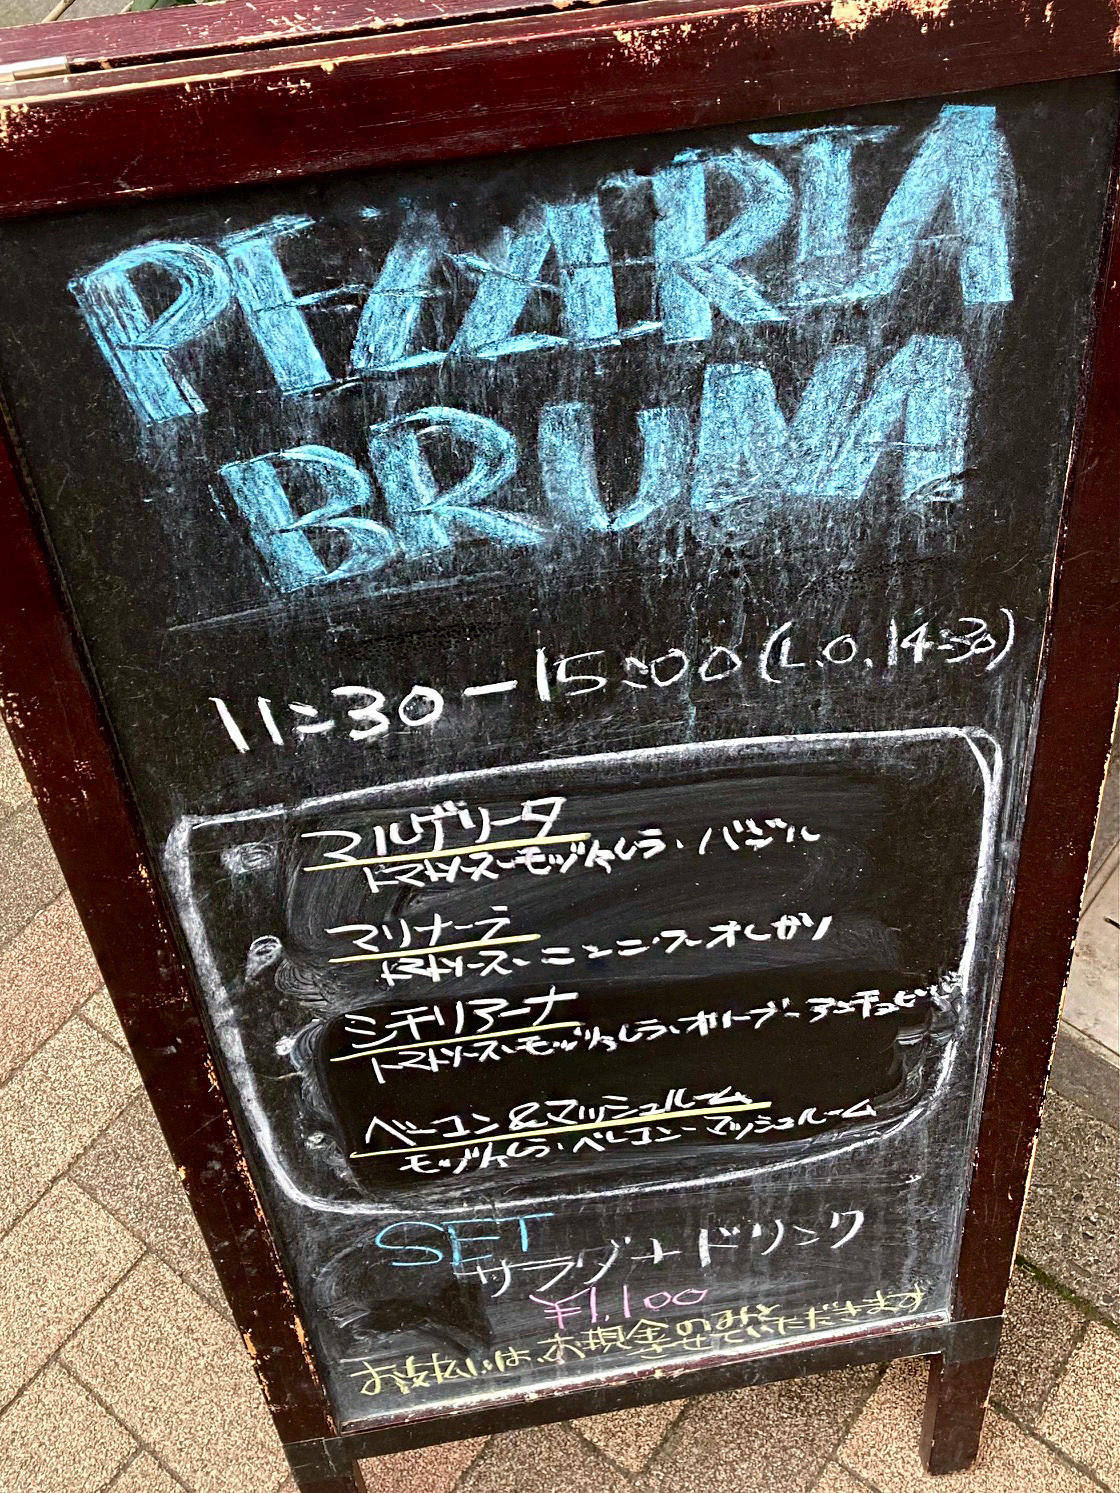 PIZZERIA
BRUNA
11:30-15:00(L.O.14:30)
マルゲリータ
トマトソース、モッツァレラ、バジル
マリナーラ
トマトソース、ニンニク、オレガノ
シチリアーナ
トマトソース、モッツァレラ、オリーブ、アンチョビ
ベーコン&マッシュルーム
モッツァレラ、ベーコン、マッシュルーム
SET
サラダ+ドリンク
¥1,100
お支払いは、お現金のみと
させていただきます